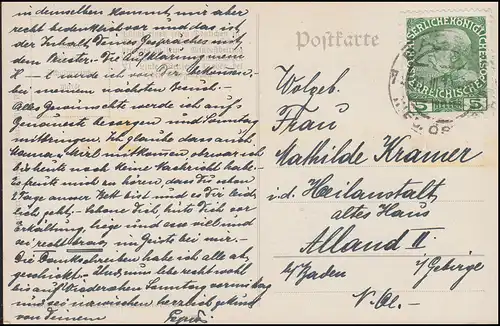 in demselben kommt, mir aber
recht bedenklich vor und das ist
der Inhalt Deines Gespräches mit
dem Priester. Die Aufklärung wem
H – t werde ich von Dir bekommen
bei meinem nächsten Besuch.
Alles Gewünschte werde ich aufs
Genaueste besorgen und Sonntag
mitbringen. Ich glaube dass auch
mitkommen, obzwar ich
bis heute noch keine Nachricht habe.
Es freute mich zu hören, dass Du schon
2 Tage ausser Bett bist und es Dir leid-
lich geht. Schone Dich, hüte Dich vor
Erkältung, liege und iss viel und
sei recht brav, im Geiste bei mir.
Die Dankschreiben habe ich alle ab-
geschickt. Und nun lebe recht wohl
bis auf Wiedersehen Sonntag vormittag
und sei inzwischen herzlich geküsst
von Deinem
Postkarte
Wolgeb.
Frau
Mathilde Kramer
i.d. Heilanstalt
altes Haus
Alland II
b/ Baden i/ Gebirge
N. Oe.
KAISERLICHE KÖNIGLICHE
ÖSTERREICHISCHE
5 5